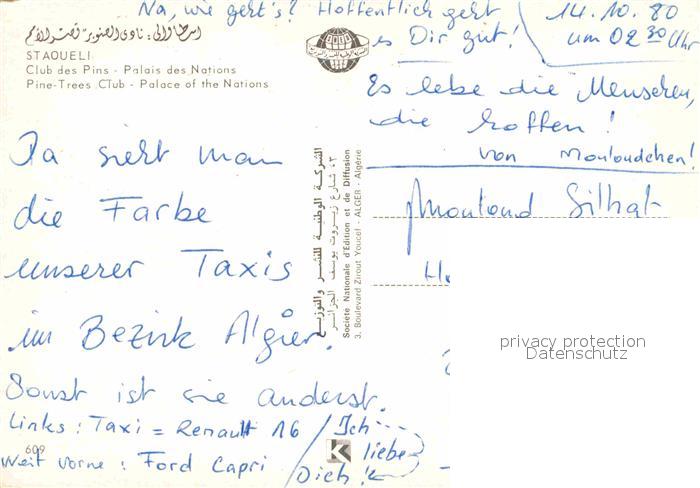 Na, wie geht's? Hoffentlich geht
es Dir gut!
14.10.80
um 02 30 Uhr
STAOUELI
Club des Pins - Palais des Nations
Pine-Trees Club - Palace of the Nations
Es lebe die Menschen,
die hoffen!
von Mouloudchen!
Da sieht man
die Farbe
unserer Taxis
im Bezirk Algier.
Sonst ist sie anderst.
Links: Taxi = Renault 16
Weit vorne: Ford Capri
Ich
liebe
Dich!
609
K
الشركة الوطنية للنشر والتوزيع
٣، شارع زيروت يوسف الجزائر
Société Nationale d'Edition et de Diffusion
3, Boulevard Zirout Youcef - ALGER - Algérie
Mouloud Silhat
privacy protection
Datenschutz